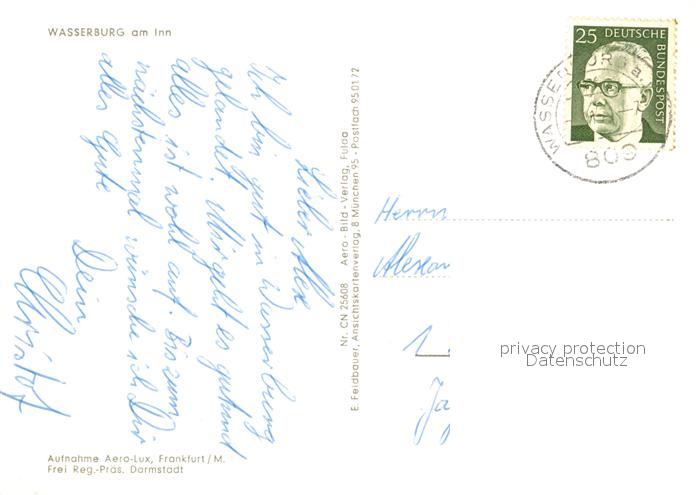 WASSERBURG am Inn
Lieber Alex
Ich bin gut in Wasserburg
gelandet. Mir geht es gut und
alles ist wohl auf. Bis zum
nächstenmal wünsche ich Dir
alles Gute
Dein
Christof
Aufnahme Aero-Lux, Frankfurt/M.
Frei Reg.-Präs. Darmstadt
Nr. CN 25608 Aero-Bild-Verlag, Fulda
E. Feldbauer, Ansichtskartenverlag, 8 München 95 - Postfach 950172
25 DEUTSCHE
BUNDESPOST
WASSERBURG a.
809
Herrn
Alexan
1
Ja
privacy protection
Datenschutz